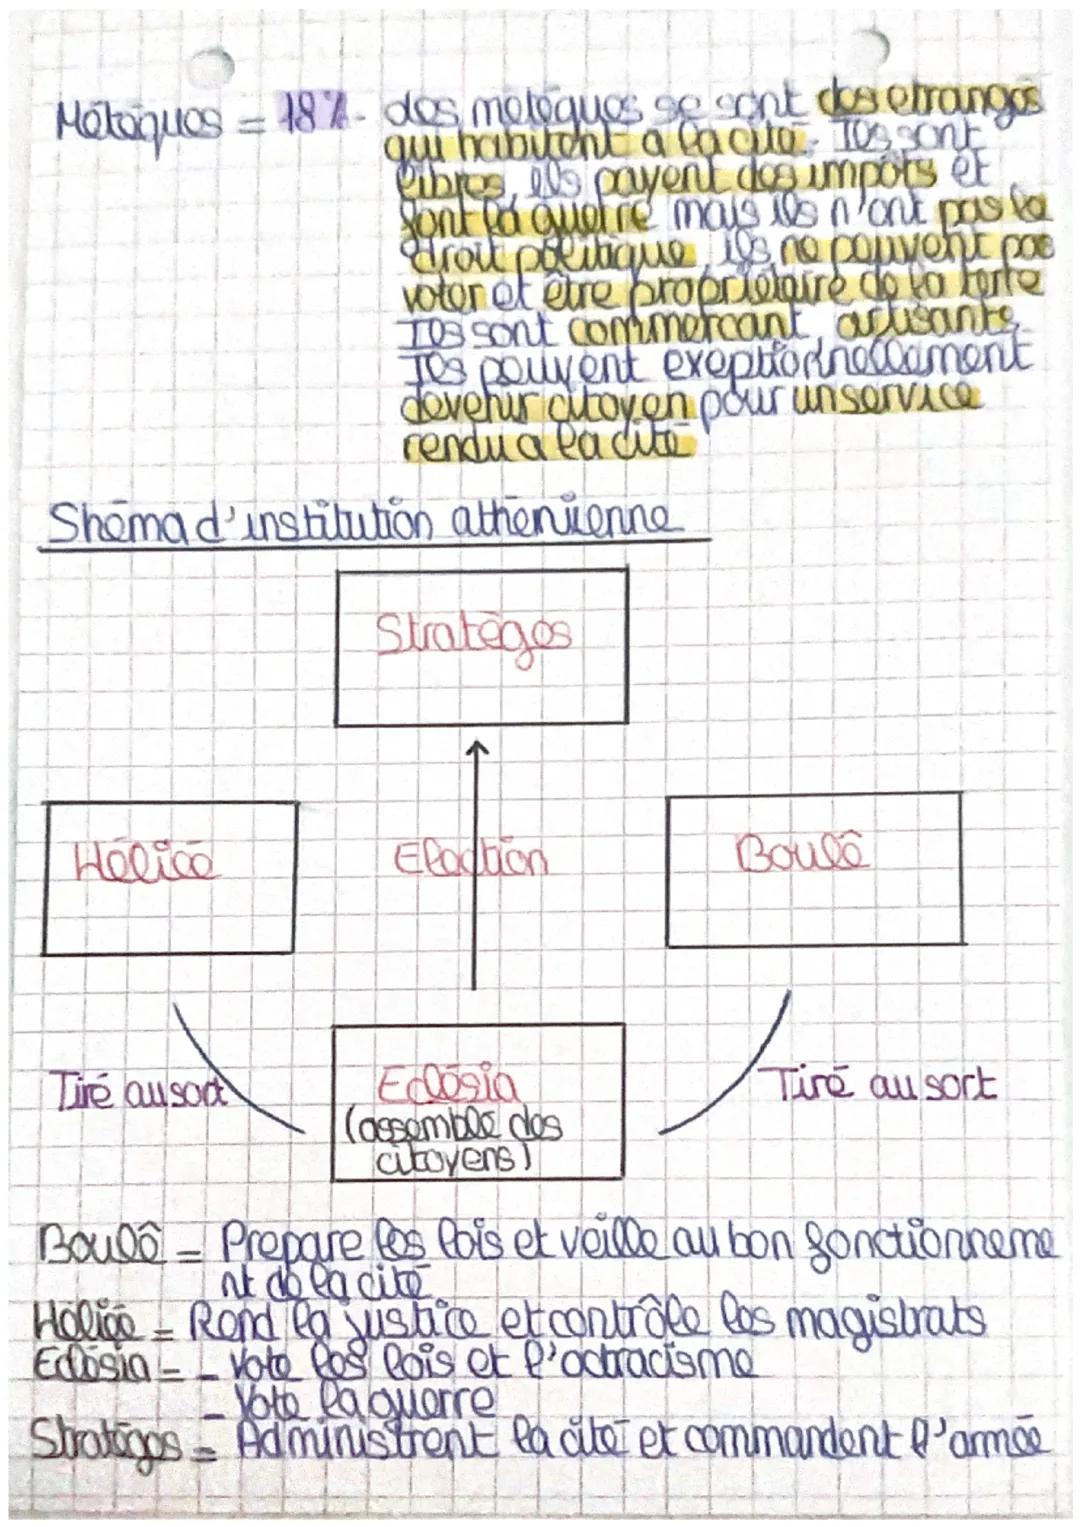 Métèques = 18% - des métèques se sont des etrangés
qui habitent a la cité. Ils sont
libres, ils payent des impôts et
font la guerre mais ils n'ont pas la
droit politique, ils ne peuvent pas
voter et être propriétaire de la terre
Ils sont commercant artisants
Ils peuvent exeptionnellement
devenir citoyen pour un service
rendu a la cité
Shéma d'institution athénienne
Stratèges
Héliée
Election
Boulê
Tiré au sort
Eclésia
(assemblé des
citoyens)
Tiré au sort
Boulê = Prepare les lois et veille au bon fonctionneme
nt de la cité
Héliée = Rend la justice et contrôle les magistrats
Eclésia = - Vote les lois et l'octracisme
- Vote la guerre
Stratèges = Administrent la cité et commandent l'armée